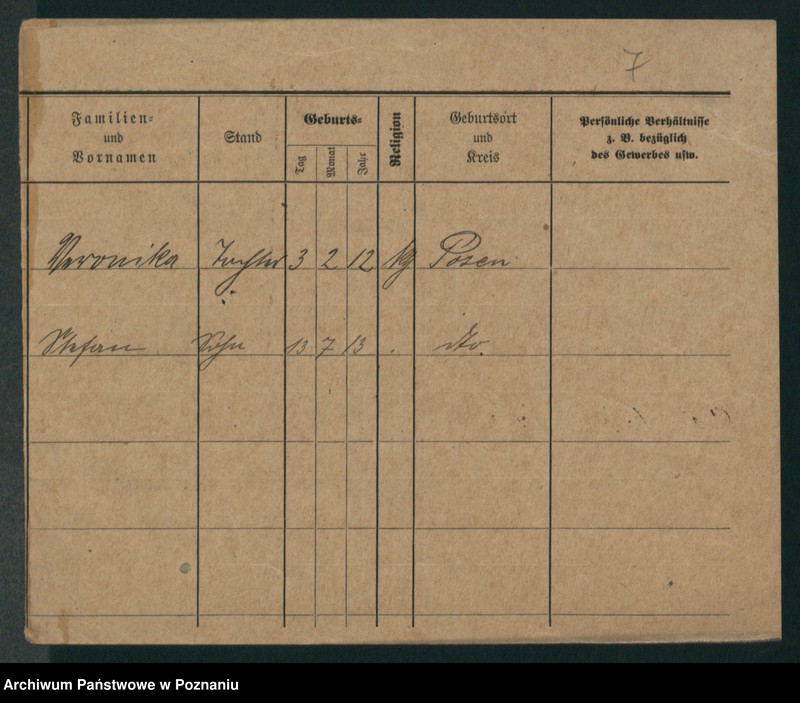 7
Familien=
und
Vornamen
Stand
Geburts=
Tag
Monat
Jahr
Religion
Geburtsort
und
Kreis
Persönliche Verhältnisse
z. B. bezüglich
des Gewerbes usw.
Veronika Tochter 3 2 12 kg Posen
Stefan Sohn 13 7 13 . dto.
Archiwum Państwowe w Poznaniu